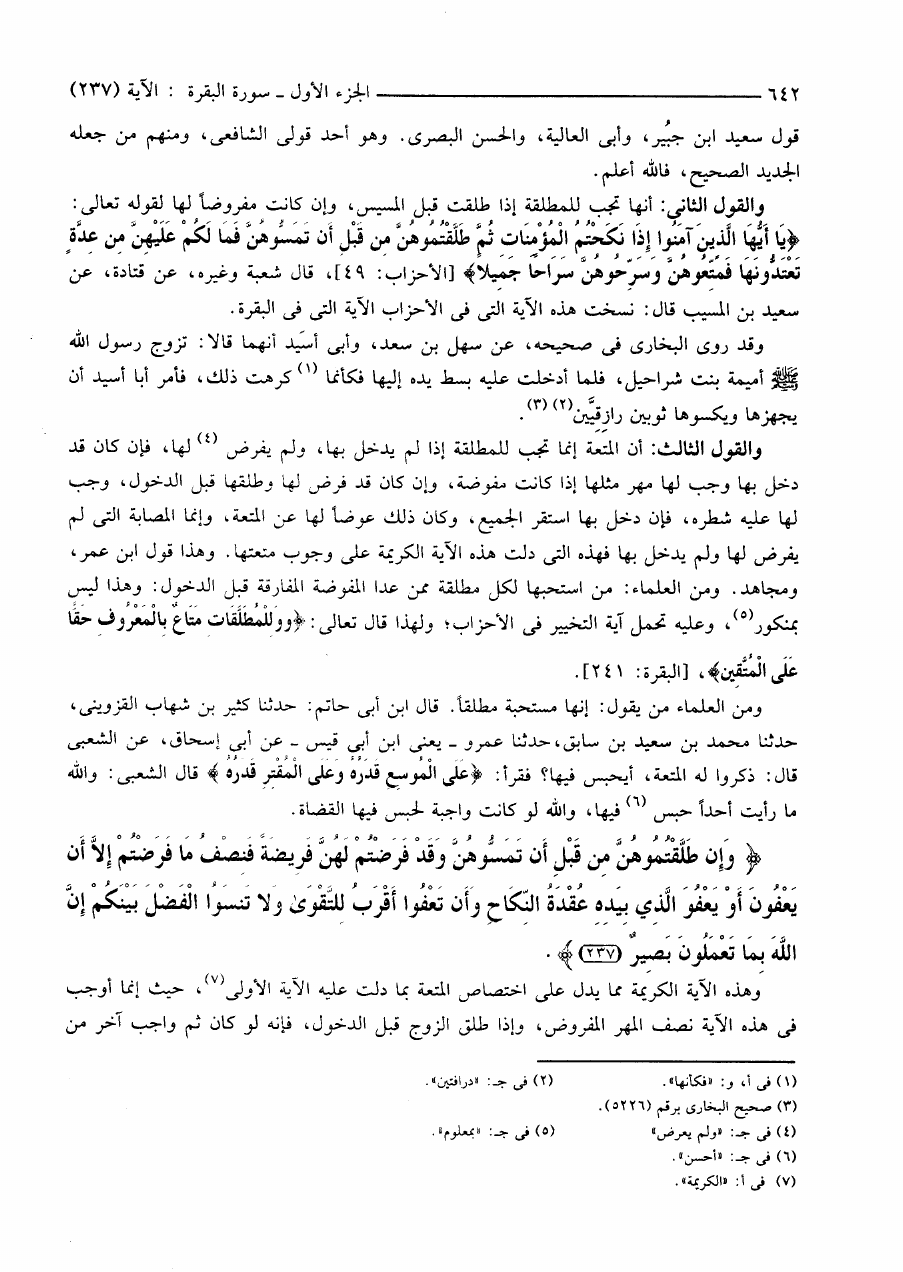 ٦٤٢ ــــــــــــــــ الجزء الأول ـ سورة البقرة : الآية (٢٣٧)
قول سعيد ابن جبُير، وأبى العالية، والحسن البصرى. وهو أحد قولى الشافعى، ومنهم من جعله
الجديد الصحيح، فالله أعلم.
والقول الثاني: أنها تجب للمطلقة إذا طلقت قبل المسيس، وإن كانت مفروضاً لها لقوله تعالى:
﴿يَا أَيُّهَا الَّذِينَ آمَنُوا إِذَا نَكَحْتُمُ الْمُؤْمِنَاتِ ثُمَّ طَلَّقْتُمُوهُنَّ مِن قَبْلِ أَن تَمَسُّوهُنَّ فَمَا لَكُمْ عَلَيْهِنَّ مِن عِدَّةٍ
تَعْتَدُّونَهَا فَمَتِّعُوهُنَّ وَسَرِّحُوهُنَّ سَرَاحًا جَمِيلاً﴾ [الأحزاب: ٤٩]، قال شعبة وغيره، عن قتادة، عن
سعيد بن المسيب قال: نسخت هذه الآية التى فى الأحزاب الآية التى فى البقرة.
وقد روى البخارى فى صحيحه، عن سهل بن سعد، وأبى أسَيد أنهما قالا: تزوج رسول الله
ﷺ أميمة بنت شراحيل، فلما أدخلت عليه بسط يده إليها فكأنما (١) كرهت ذلك، فأمر أبا أسيد أن
يجهزها ويكسوها ثوبين رازقيَّين(٢) (٣).
والقول الثالث: أن المتعة إنما تجب للمطلقة إذا لم يدخل بها، ولم يفرض (٤) لها، فإن كان قد
دخل بها وجب لها مهر مثلها إذا كانت مفوضة، وإن كان قد فرض لها وطلقها قبل الدخول، وجب
لها عليه شطره، فإن دخل بها استقر الجميع، وكان ذلك عوضاً لها عن المتعة، وإنما المصابة التى لم
يفرض لها ولم يدخل بها فهذه التى دلت هذه الآية الكريمة على وجوب متعتها. وهذا قول ابن عمر،
ومجاهد. ومن العلماء: من استحبها لكل مطلقة ممن عدا المفوضة المفارقة قبل الدخول: وهذا ليس
بمنكور(٥)، وعليه تحمل آية التخيير فى الأحزاب؛ ولهذا قال تعالى: ﴿وولِلْمُطَلَّقَاتِ مَتَاعٌ بِالْمَعْرُوفِ حَقًّا
عَلَى الْمُتَّقِينَ﴾، [البقرة: ٢٤١].
ومن العلماء من يقول: إنها مستحبة مطلقاً. قال ابن أبى حاتم: حدثنا كثير بن شهاب القزوينى،
حدثنا محمد بن سعيد بن سابق، حدثنا عمرو ـ يعنى ابن أبي قيس ـ عن أبى إسحاق، عن الشعبى
قال: ذكروا له المتعة، أيحبس فيها؟ فقرأ: ﴿عَلَى الْمُوسِعِ قَدَرُهُ وَعَلَى الْمُقْتِرِ قَدَرُهُ ﴾ قال الشعبى: والله
ما رأيت أحداً حبس (٦) فيها، والله لو كانت واجبة لحبس فيها القضاة.
﴿ وَإِن طَلَّقْتُمُوهُنَّ مِن قَبْلِ أَن تَمَسُّوهُنَّ وَقَدْ فَرَضْتُمْ لَهُنَّ فَرِيضَةً فَنِصْفُ مَا فَرَضْتُمْ إِلاَّ أَن
يَعْفُونَ أَوْ يَعْفُوَ الَّذِي بِيَدِهِ عُقْدَةُ النِّكَاحِ وَأَن تَعْفُوا أَقْرَبُ لِلتَّقْوَىٰ وَلا تَنسَوُا الْفَضْلَ بَيْنَكُمْ إِنَّ
اللَّهَ بِمَا تَعْمَلُونَ بَصِيرٌ (٢٣٧) ﴾ .
وهذه الآية الكريمة مما يدل على اختصاص المتعة بما دلت عليه الآية الأولى(٧)، حيث إنما أوجب
فى هذه الآية نصف المهر المفروض، وإذا طلق الزوج قبل الدخول، فإنه لو كان ثم واجب آخر من
(١) فى أ، و: «فكأنها». (٢) فى جـ: «درافتين».
(٣) صحيح البخارى برقم (٥٢٢٦).
(٤) فى جـ: «ولم يعرض» (٥) فى جـ: «بمعلوم».
(٦) فى جـ: «أحسن».
(٧) فى أ: «الكريمة».